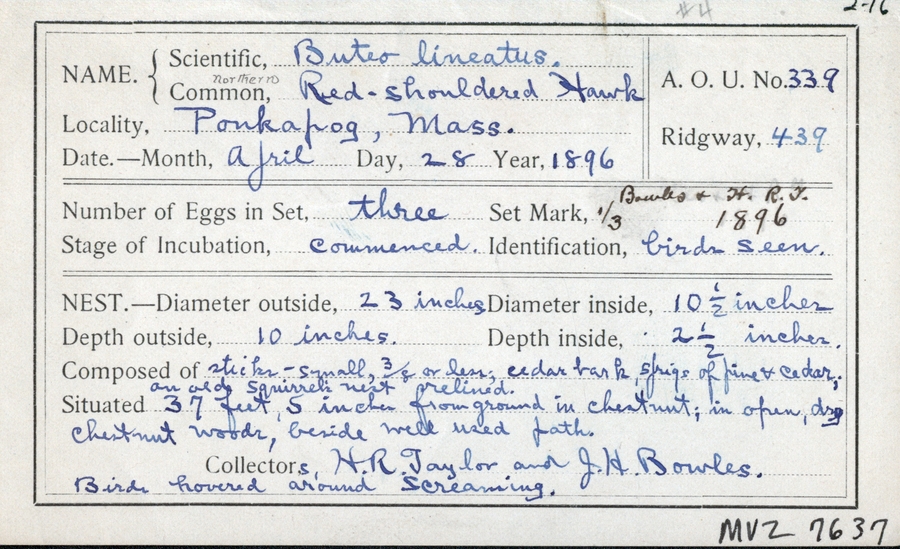 #4
2-16
NAME. { Scientific, Buteo lineatus.
northern
Common, Red-shouldered Hawk
A. O. U. No. 339
Locality, Ponkapog, Mass.
Ridgway, 439
Date.—Month, April Day, 28 Year, 1896
Bowles & H. R. T.
Number of Eggs in Set, three Set Mark, 1/3 1896
Stage of Incubation, commenced. Identification, birds seen.
NEST.—Diameter outside, 23 inches Diameter inside, 10 1/2 inches
Depth outside, 10 inches. Depth inside, 2 1/2 inches.
Composed of sticks-small, or less, cedar bark, sprigs of pine & cedar;
an old squirrels nest relined.
Situated 37 feet, 5 inches from ground in chestnut; in open, dry
chestnut woods, beside well used path.
Collectors, H.R. Taylor and J.H. Bowles.
Birds hovered around screaming.
MVZ 7637